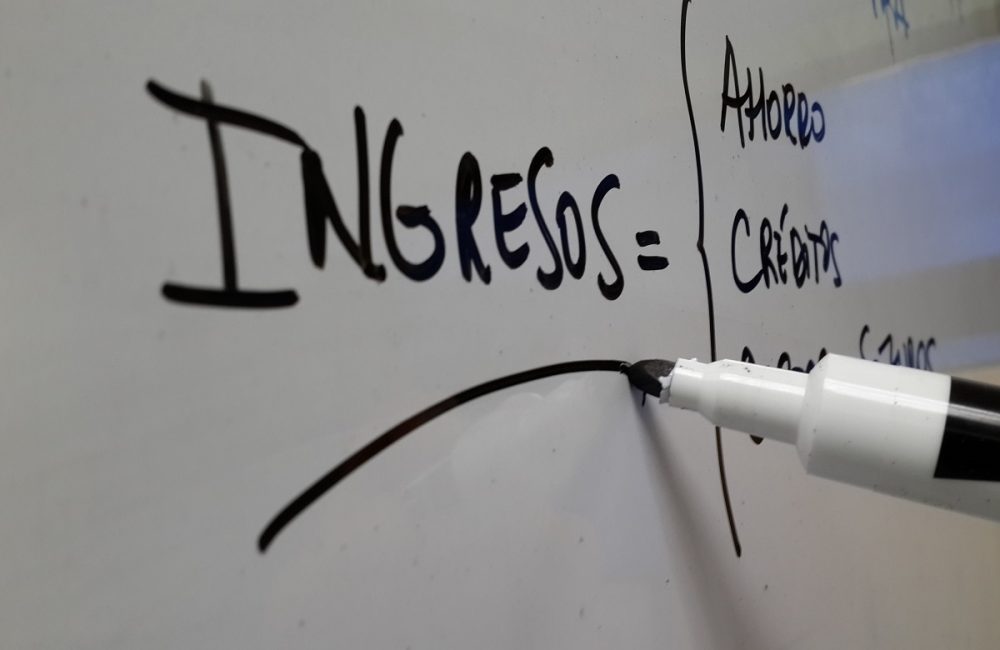 INGRESOS =
AHORRO
CRÉDITOS